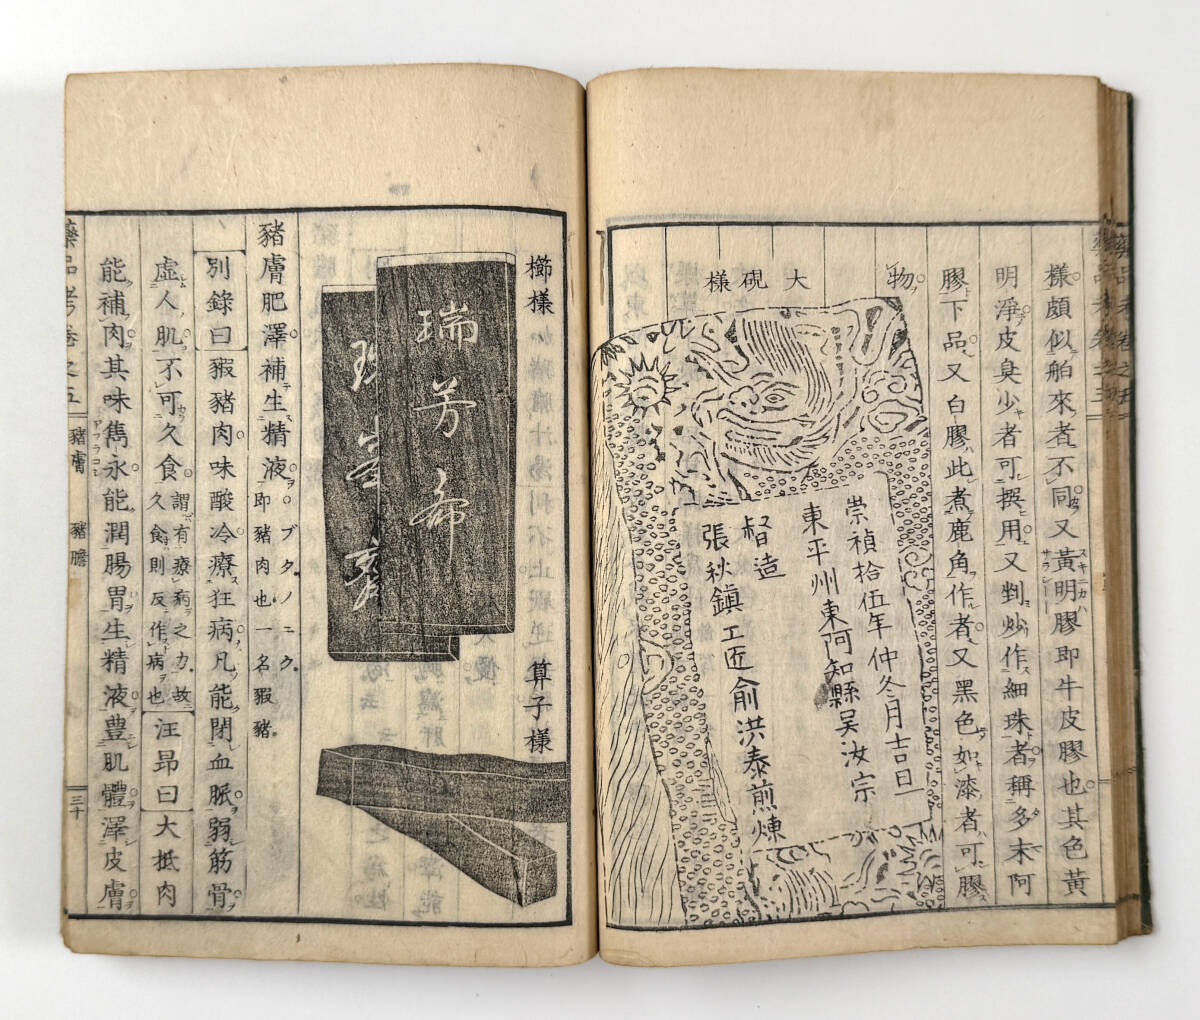 樣頗似舶來者不同又黃明膠即牛皮膠也其色黃
スキニカハ
サラシ
明淨皮臭少者可撰用又剉炒作細珠者稱多末阿
膠下品又白膠此煮鹿角作者又黑色如漆者可膠
物
大硯樣
崇禎拾伍年仲冬月吉日
東平州東阿知縣吴汝宗
督造
張秋鎮工匠俞洪泰煎煉
櫛樣
算子樣
瑞芳齋
豬膚肥澤補生精液
ブタノニク
即豬肉也一名豭豬
別錄曰豭豬肉味酸冷療狂病凡能閉血脈弱筋骨
虛人肌不可久食謂有療病之力故久食則反作病也汪昂曰大抵肉
能補肉其味雋永能潤腸胃生精液豊肌體澤皮膚
藥品考卷之五
豬膚
豬膽
三十